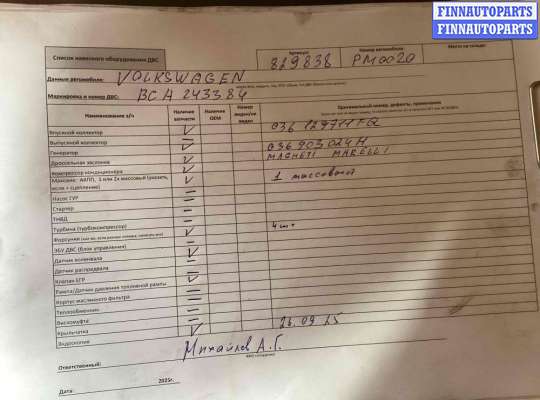 FINNAUTOPARTS
FINNAUTOPARTS
Список навесного оборудования ДВС
Артикул: Номер автомобиля: Место на складе:
829838 PM0020
Данные автомобиля: VOLKSWAGEN
Маркировка и номер ДВС: BCA 243384
Наименование з/ч Наличие запчасти Наличие ОЕМ Номер видео/не видео Оригинальный номер, дефекты, примечания
Впускной коллектор 036 129711 FQ
Выпускной коллектор
Генератор 036 903 024H
Дроссельная заслонка MAGNETI MARELLI
Компрессор кондиционера
Маховик: АКПП, 1 или 2х массовый (указать, если + сцепление) 1 массовый
Насос ГУР
Стартер
ТНВД
Турбина (турбокомпрессор)
Форсунки 4шт
ЭБУ ДВС (блок управления)
Датчик коленвала
Датчик распредвала
Клапан ЕГР
Рампа/Датчик давления топливной рампы
Корпус масляного фильтра
Теплообменник
Вискомуфта
Крыльчатка
Эндоскопия 26.09.25
Ответственный: Михайлов А.Г.
Дата: 2025г.